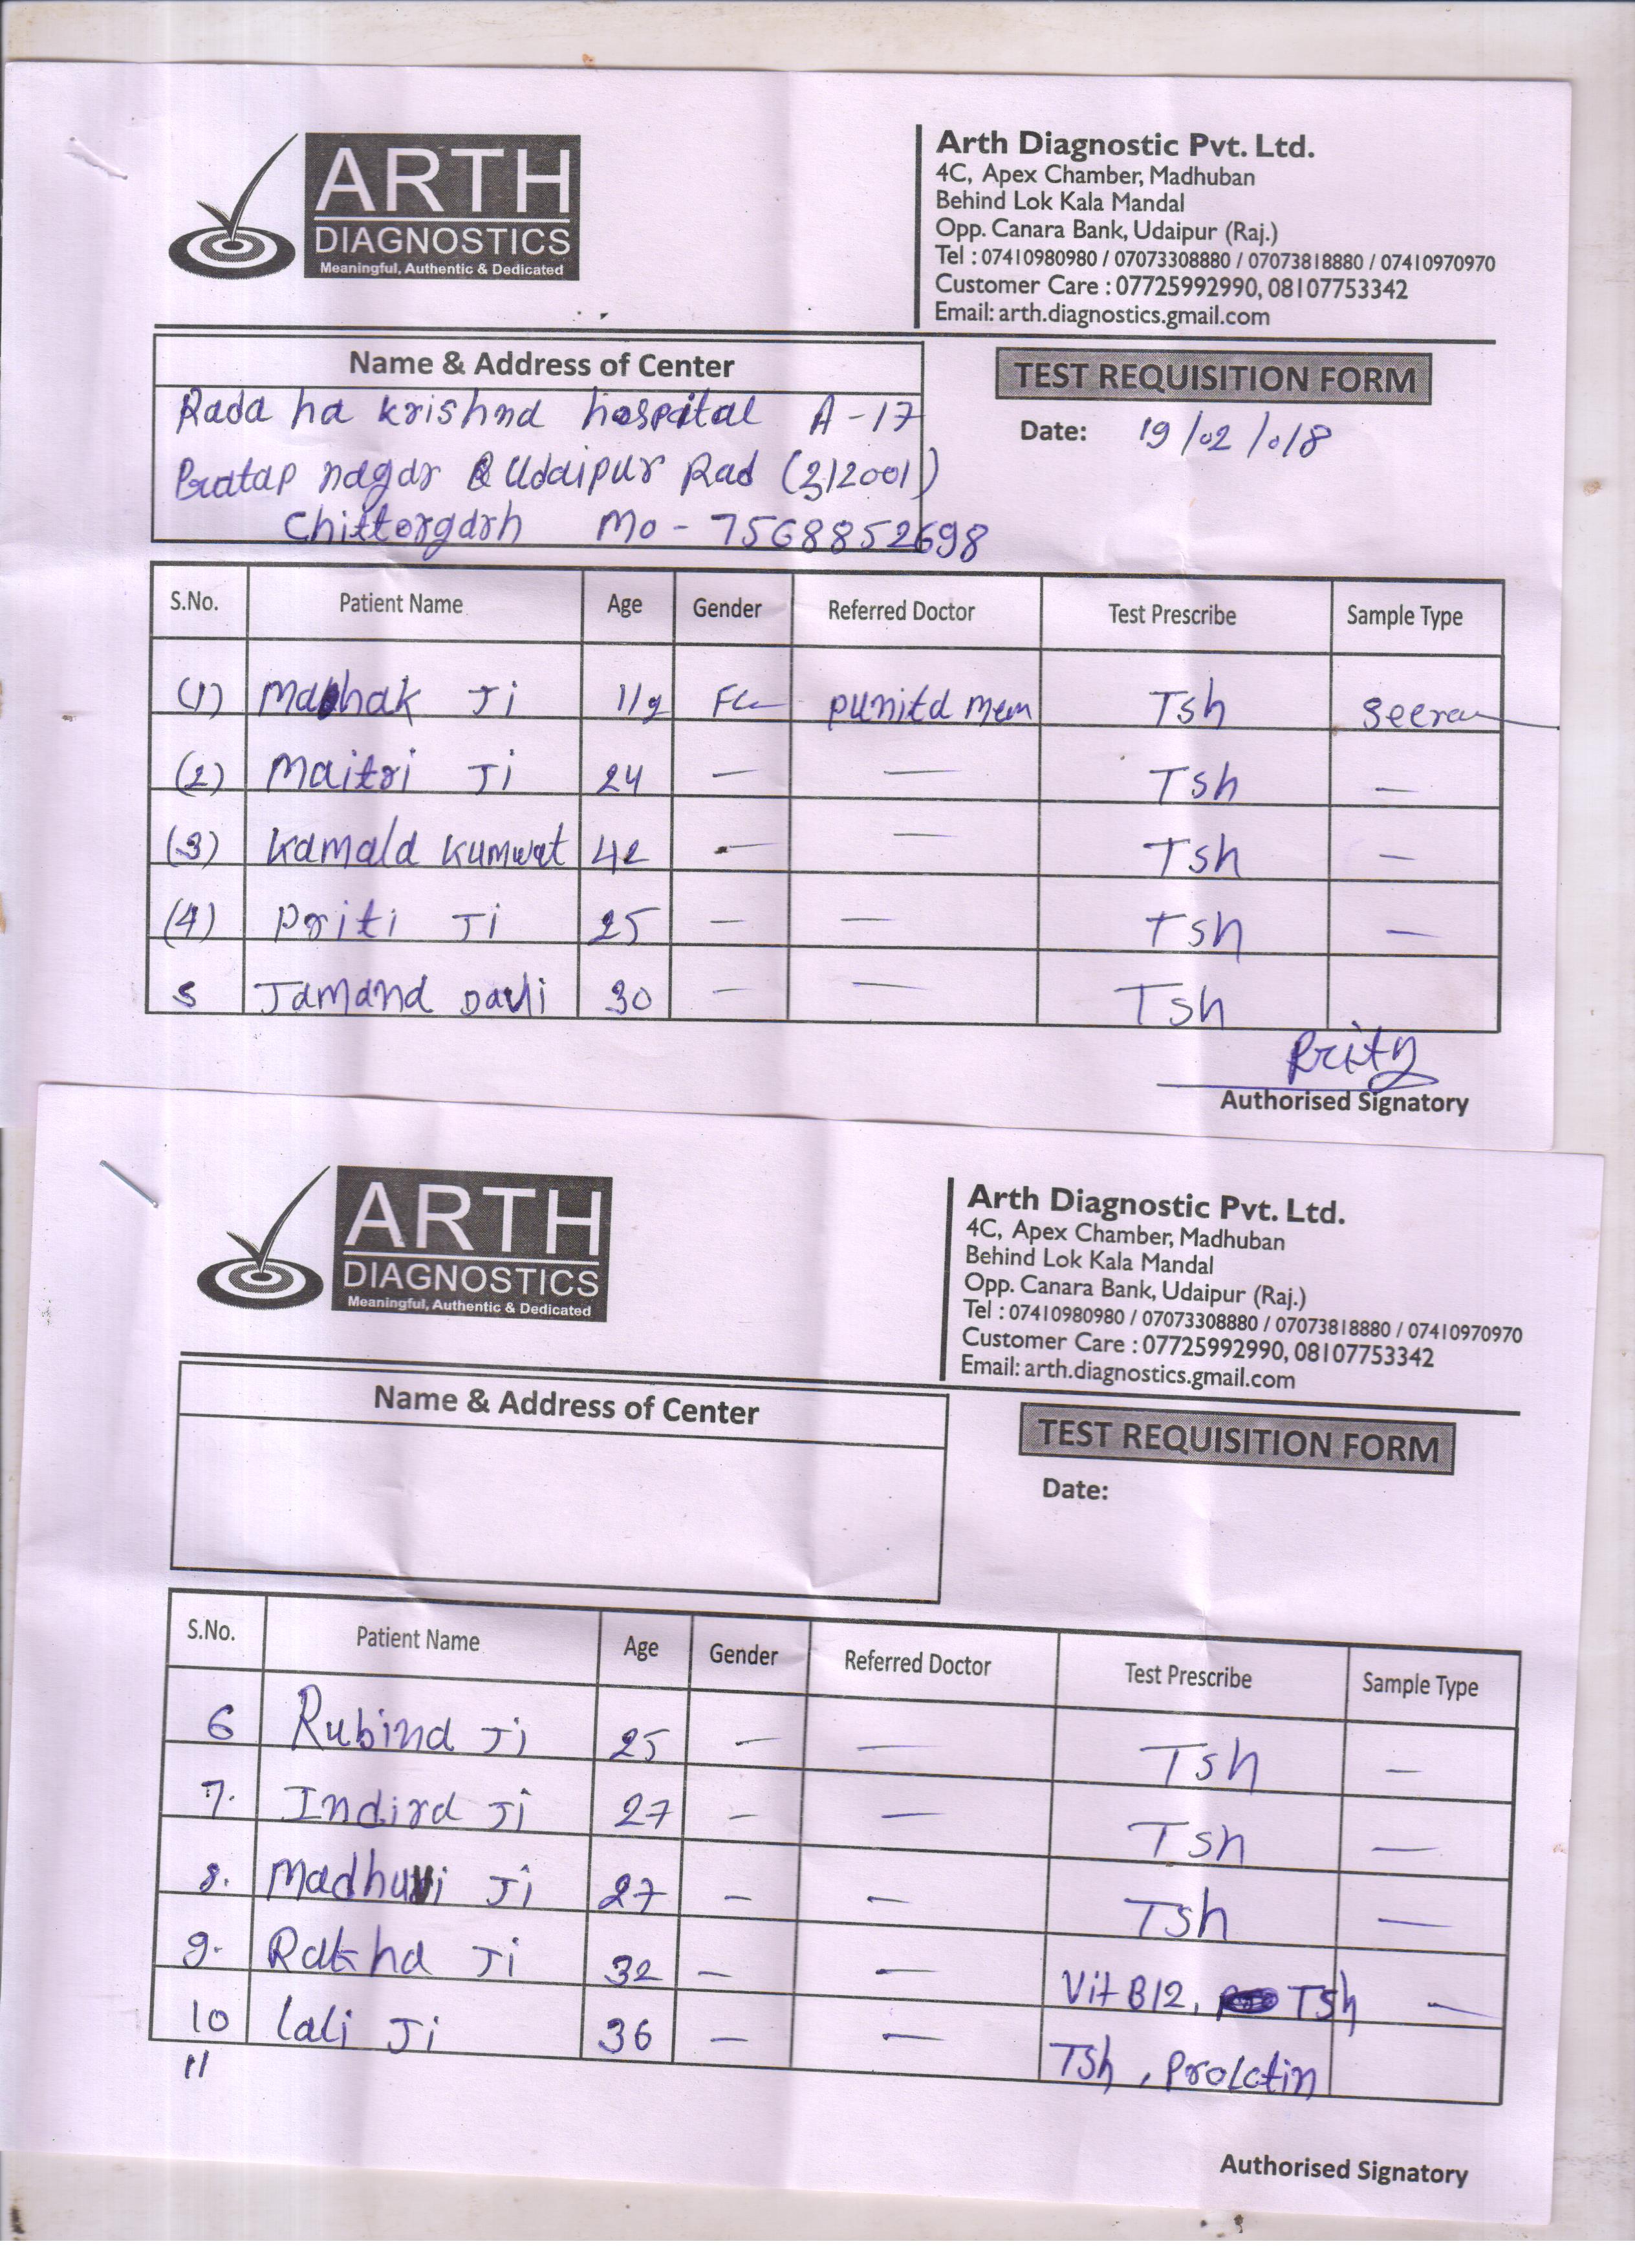 ARTH
DIAGNOSTICS
Meaningful, Authentic & Dedicated
Arth Diagnostic Pvt. Ltd.
4C, Apex Chamber, Madhuban
Behind Lok Kala Mandal
Opp. Canara Bank, Udaipur (Raj.)
Tel : 07410980980 / 07073308880 / 07073818880 / 07410970970
Customer Care : 07725992990, 08107753342
Email: arth.diagnostics.gmail.com
Name & Address of Center
Rada ha krishna hospital A-17
Pratap nagar Udaipur Rad (312001)
Chittorgarh Mo - 7568852698
TEST REQUISITION FORM
Date: 19/02/018
S.No. Patient Name Age Gender Referred Doctor Test Prescribe Sample Type
(1) Mahak Ji punita mem Tsh
(2) Maitri Ji 24 — — Tsh —
(3) kamala kumwat 42 — — Tsh —
(4) Priti Ji 25 — — Tsh —
5 Jamana 30 — — Tsh
Prity
Authorised Signatory
ARTH
DIAGNOSTICS
Meaningful, Authentic & Dedicated
Arth Diagnostic Pvt. Ltd.
4C, Apex Chamber, Madhuban
Behind Lok Kala Mandal
Opp. Canara Bank, Udaipur (Raj.)
Tel : 07410980980 / 07073308880 / 07073818880 / 07410970970
Customer Care : 07725992990, 08107753342
Email: arth.diagnostics.gmail.com
Name & Address of Center
TEST REQUISITION FORM
Date:
S.No. Patient Name Age Gender Referred Doctor Test Prescribe Sample Type
6 Rubina Ji 25 — — Tsh —
7. Indira Ji 27 — — Tsh —
8. Ji 27 — — Tsh —
9. Ji 32 — — Vit B12, Tsh —
10 lali Ji 36 — — Tsh, Prolctin
11
Authorised Signatory